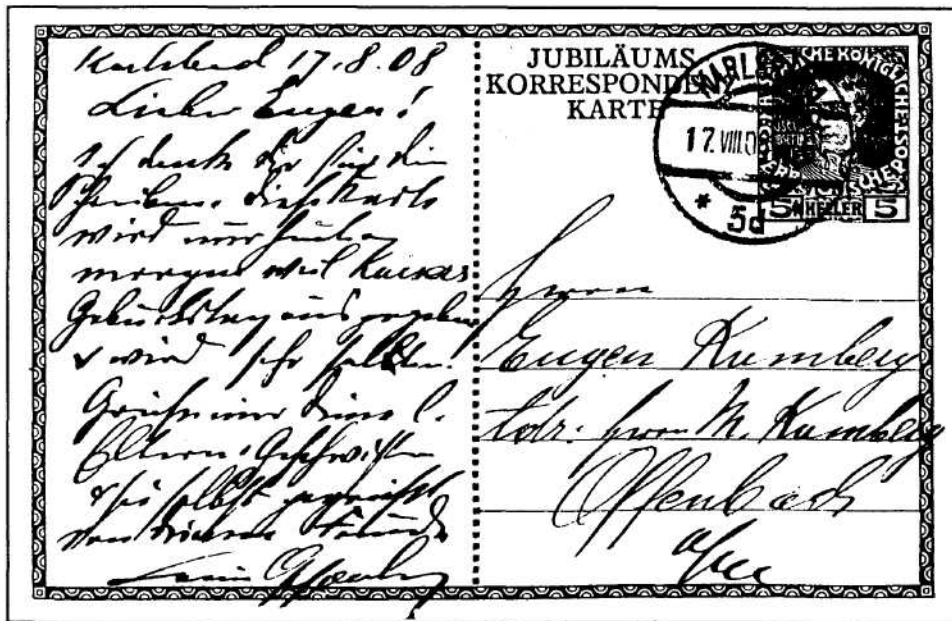 Karlsbad 17.8.08
Lieber Eugen!
Ich danke dir für dein
Schreiben. Diese Karte
wird nur heute
morgen weil Kaisers
Geburtstag ausgegeben
& wird sehr selten.
Grüße mir deine l.
Eltern, Geschwister
& sei selbst gegrüßt
von deinem Freunde
JUBILÄUMS
KORRESPONDENZ
KARTE
17. VIII. 0
* 5d
5 HELLER 5
Herrn
Eugen Kumberg
Adr: Herrn M. Kumberg
Offenbach
a/M